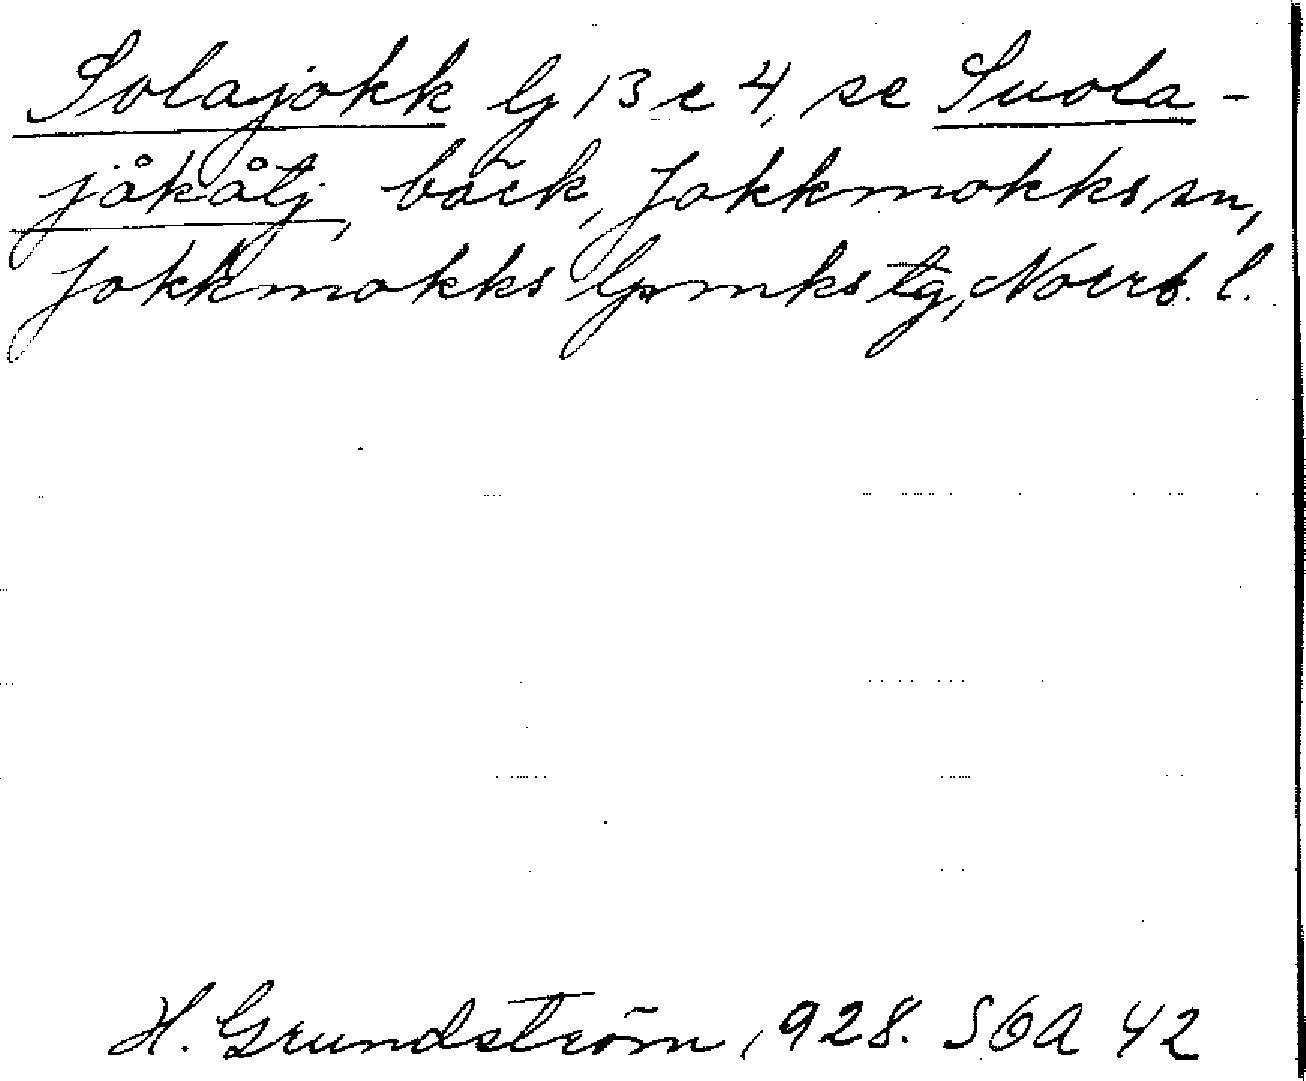 Solajokk lj 13 c 4, se Suola-
jåkåtj, bäck, Jokkmokks sn,
Jokkmokks lpmks tg, Norrb. l.
H. Grundström, 928. SOA 42